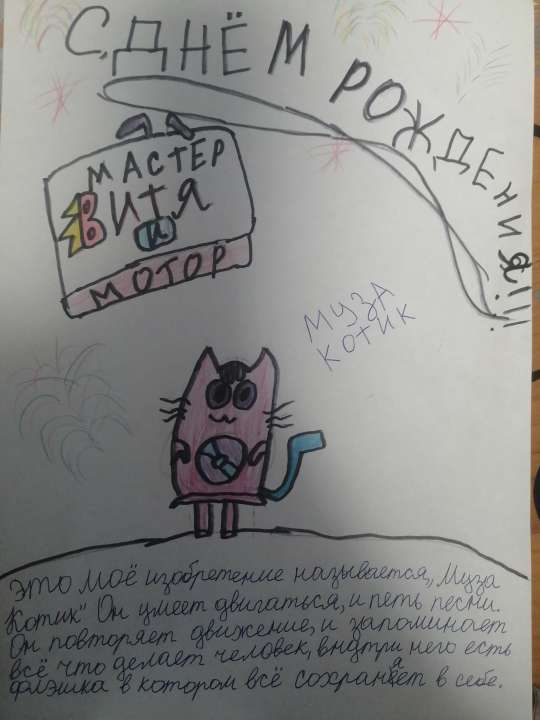 С ДНЁМ РОЖДЕНИЯ!!!
МАСТЕР
ВИТЯ
И
МОТОР
МУЗА
КОТИК
это моё изобретение называется „Муза
Котик" Он умеет двигаться, и петь песни.
Он повторяет движение, и запоминает
всё что делает человек, внутри него есть
флэшка в котором всё сохраняет в себе.